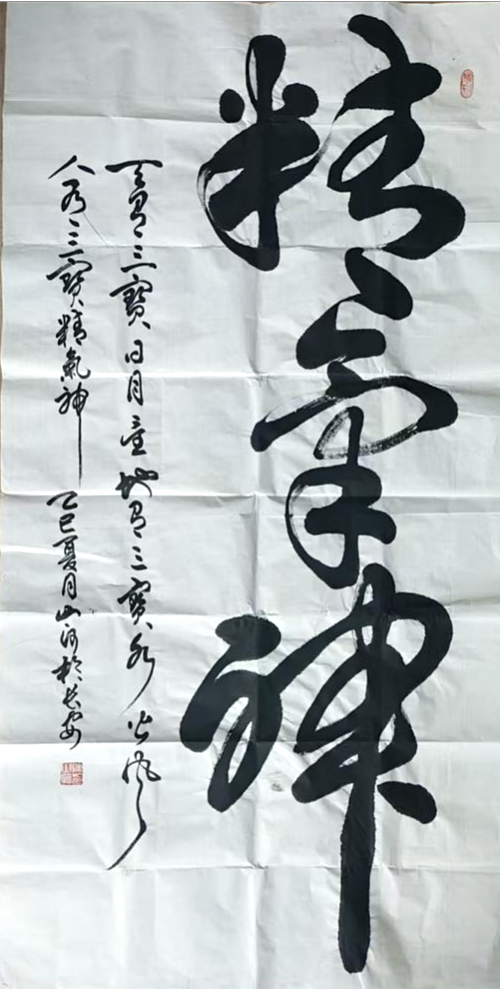 精氣神
天有三寶日月星地有三寶水火風
人有三寶精氣神
乙巳夏月山河於長安